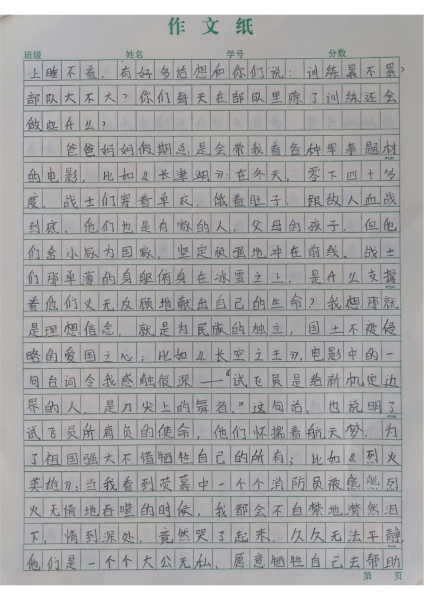 作文纸
班级 姓名 学号 分数
上睡不着，有好多话想和你们说：训练累不累？
部队大不大？你们每天在部队里除了训练还会
做些什么？
爸爸妈妈假期总是会带我看各种军事题材
的电影，比如《长津湖》：在冬天，零下四十多
度，战士们穿着单衣，饿着肚子，跟敌人血战
到底，他们也是有家的人，父母的孩子，但他
们舍小家为国家，坚定顽强地冲在前线，战士
们那单薄的身躯俯身在冰雪之上，是什么支撑
着他们义无反顾地献出自己的生命？我想那就
是理想信念，就是为民族的独立，国土不被侵
略的爱国之心；比如《长空之王》，电影中的一
句台词令我感触很深——“试飞员是给新机定边
界的人，是刀尖上的舞者。”这句话，也说明了
试飞员所肩负的使命，他们怀揣着航天梦，为
了祖国强大不惜牺牲自己的所有；比如《烈火
英雄》：当我看到荧幕中一个个消防员被熊熊烈
火无情地吞噬的时候，我都会不自禁地潸然泪
下，情到深处，竟然哭了起来，久久无法平静，
他们是一个个大公无私，愿意牺牲自己去帮助
第 页